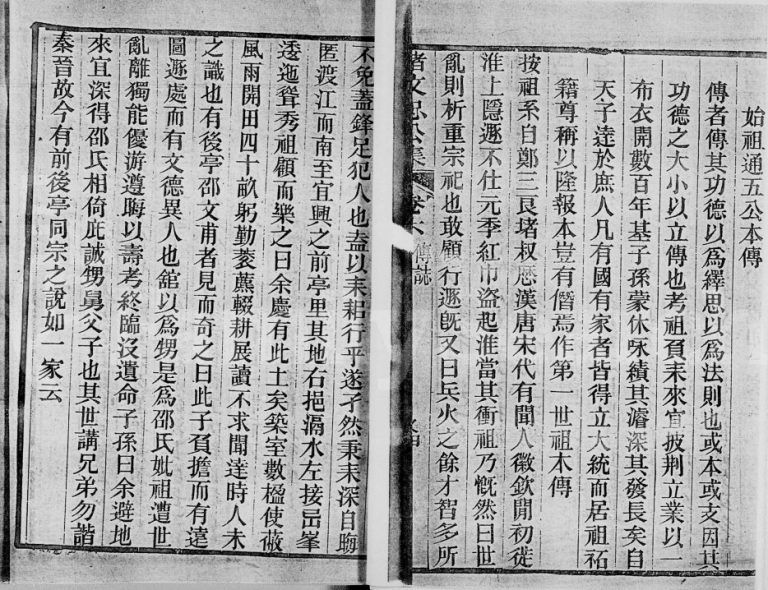 始祖通五公本傳
傳者傳其功德以爲繹思以爲法則也或本或支因其
功德之大小以立傳也考祖負耒來宜披荆立業以一
布衣開數百年基子孫蒙休咏績其濬深其發長矣自
天子逹於庶人凡有國有家者皆得立大統而居祖祏
籍尊稱以隆報本豈有僭焉作第一世祖本傳
按祖系自鄭三良堵叔歴漢唐宋代有聞人徽欽閒初徙
淮上隱遯不仕元季紅巾盜起淮當其衝祖乃慨然曰世
亂則析重宗祀也敢顧行遯旣又曰兵火之餘才智多所
堵文忠公集 卷六 傳誌
不免蓋鋒足犯人也盍以耒耜行乎遂孑然秉耒深自晦
匿渡江而南至宜興之前亭里其地右挹滆水左接嵒峯
逶迤聳秀祖顧而樂之曰余慶有此土矣築室數楹使蔽
風雨開田四十畝躬勤蓘蔍輟耕展讀不求聞達時人未
之識也有後亭邵文甫者見而奇之曰此子負擔而有遠
圖遯處而有文德異人也舘以爲甥是爲邵氏妣祖遭世
亂離獨能優游遵晦以壽考終臨沒遺命子孫曰余避地
來宜深得邵氏相倚庇誠甥舅父子也其世講兄弟勿諧
秦晉故今有前後亭同宗之說如一家云